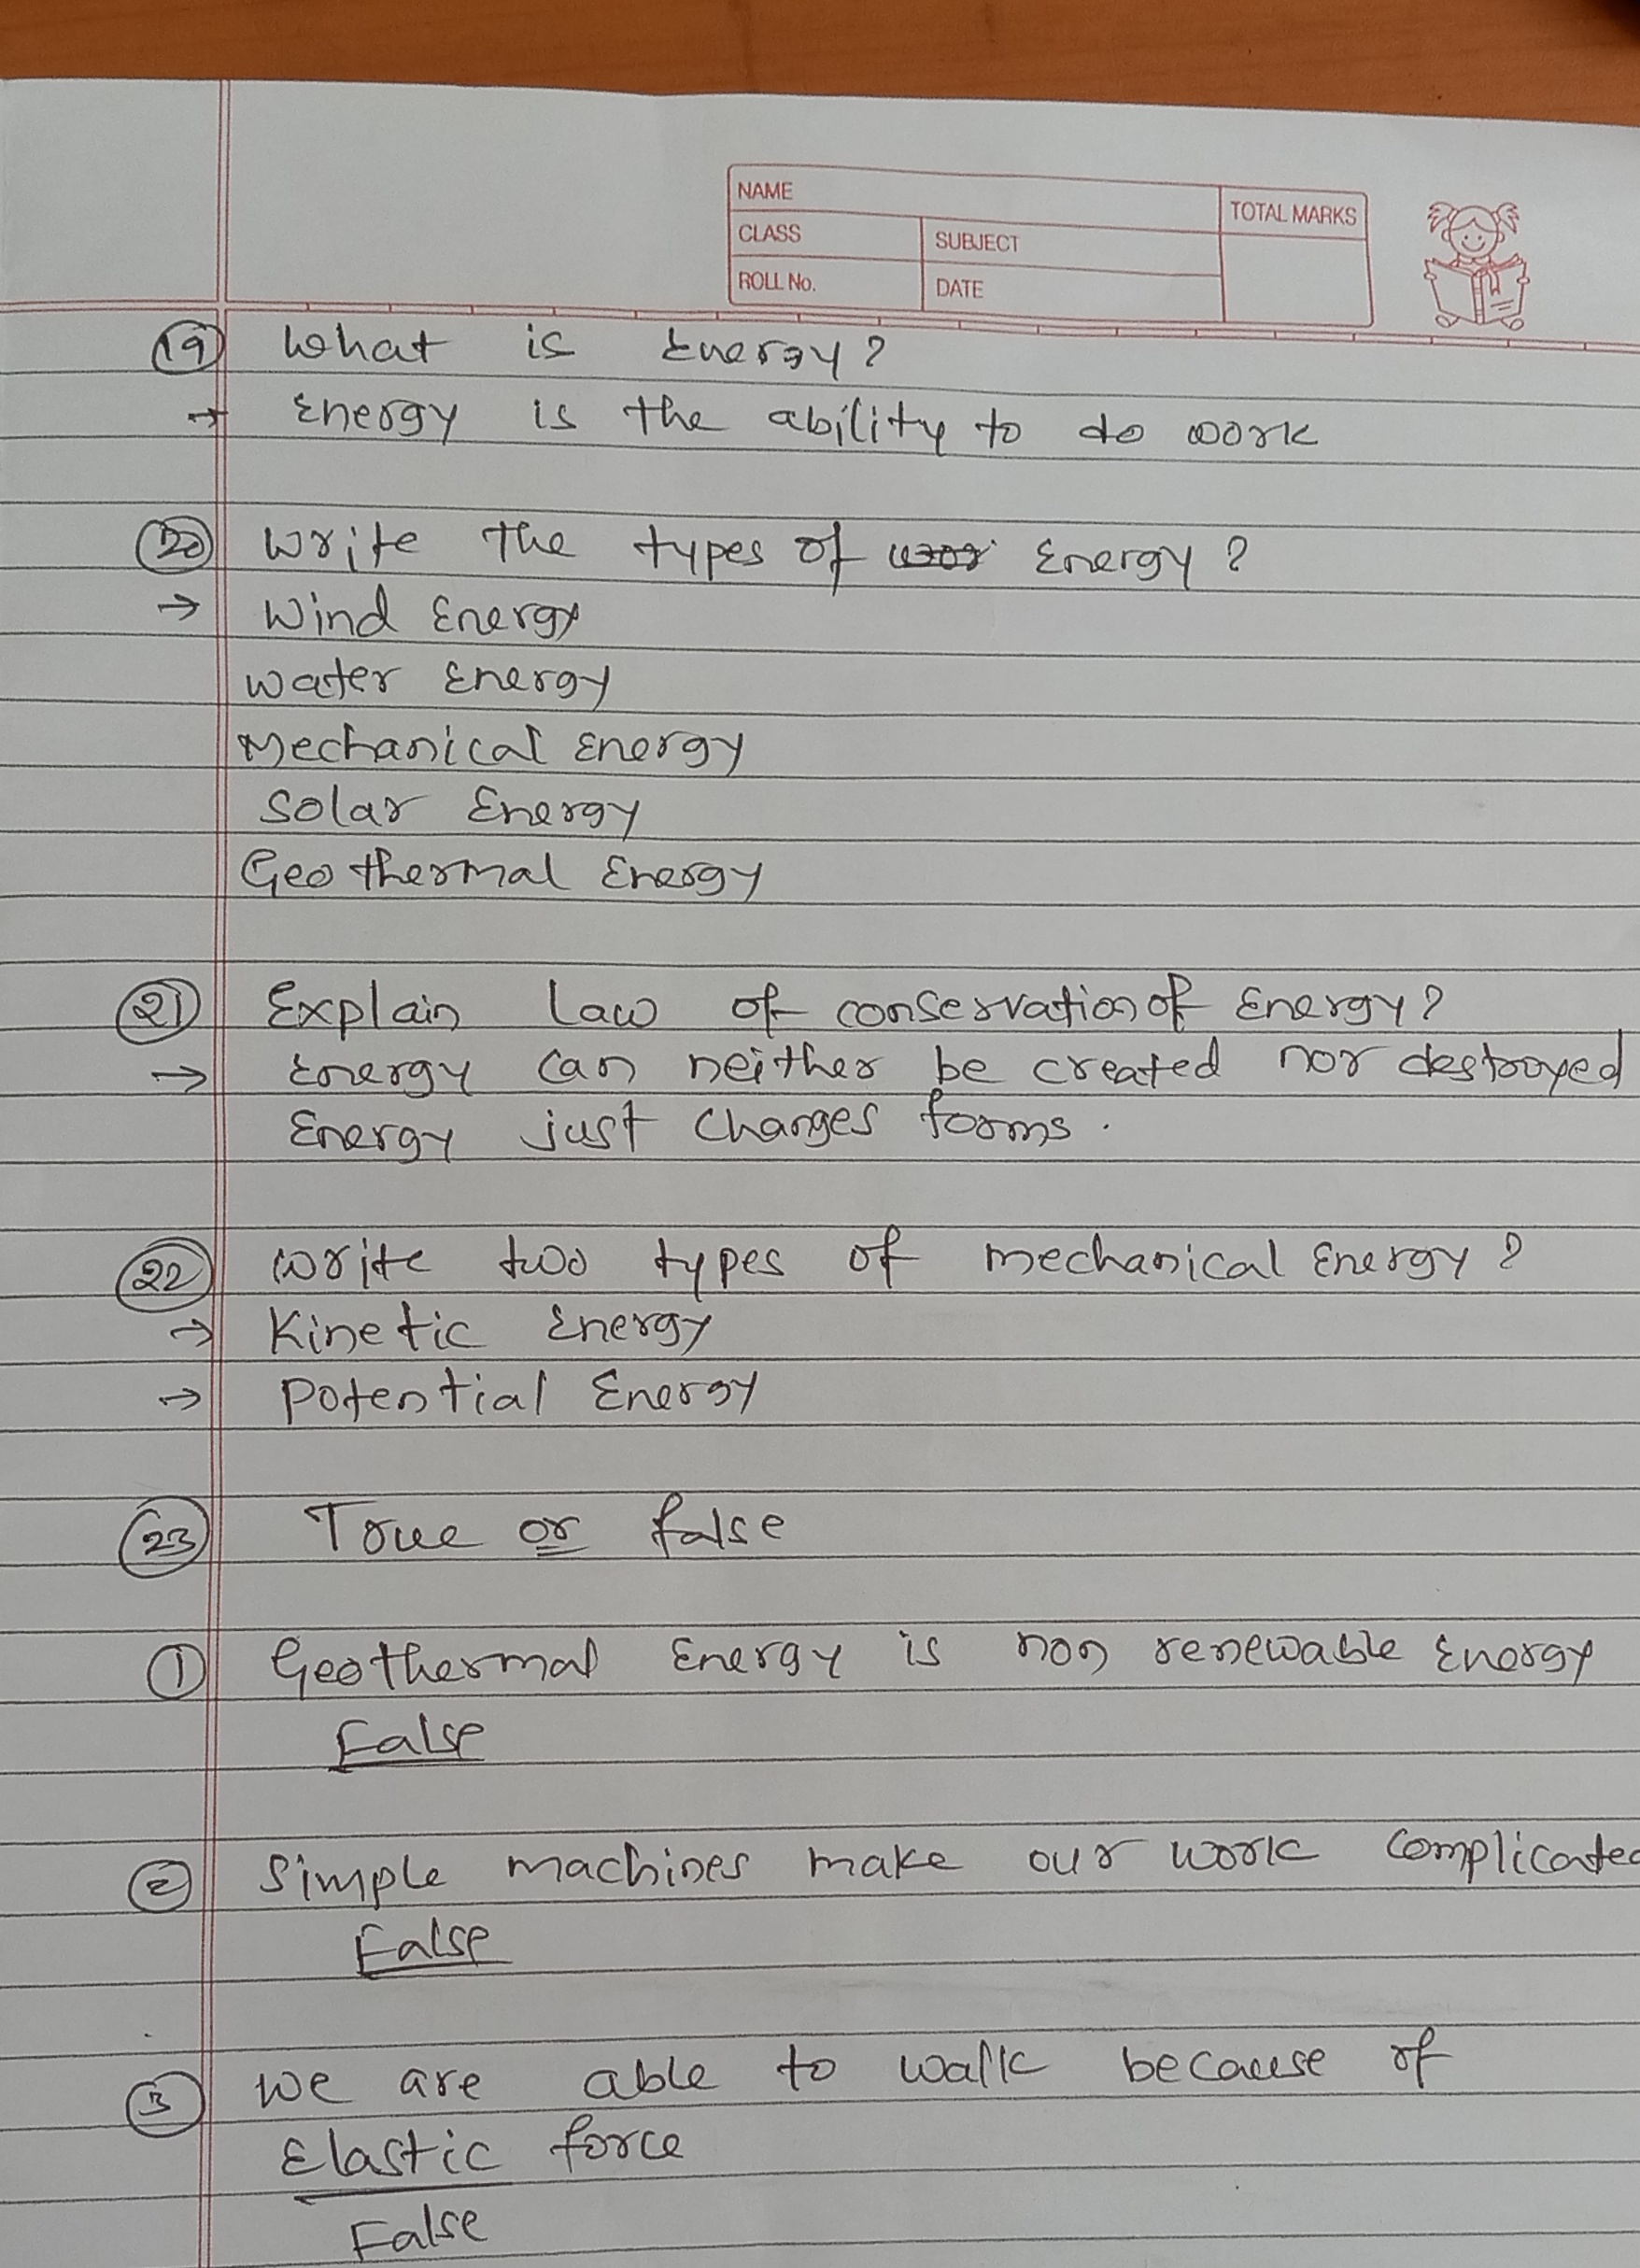 NAME
TOTAL MARKS
CLASS
SUBJECT
ROLL No.
DATE
19 What is Energy?
→ Energy is the ability to do work
20 Write the types of Energy?
→ Wind Energy
Water Energy
Mechanical Energy
Solar Energy
Geothermal Energy
21 Explain Law of conservation of Energy?
→ Energy can neither be created nor destroyed
Energy just changes forms.
22 Write two types of mechanical Energy?
→ Kinetic Energy
→ Potential Energy
23 True or false
1 Geothermal Energy is non renewable Energy
False
2 Simple machines make our work complicated
False
3 We are able to walk because of
Elastic force
False